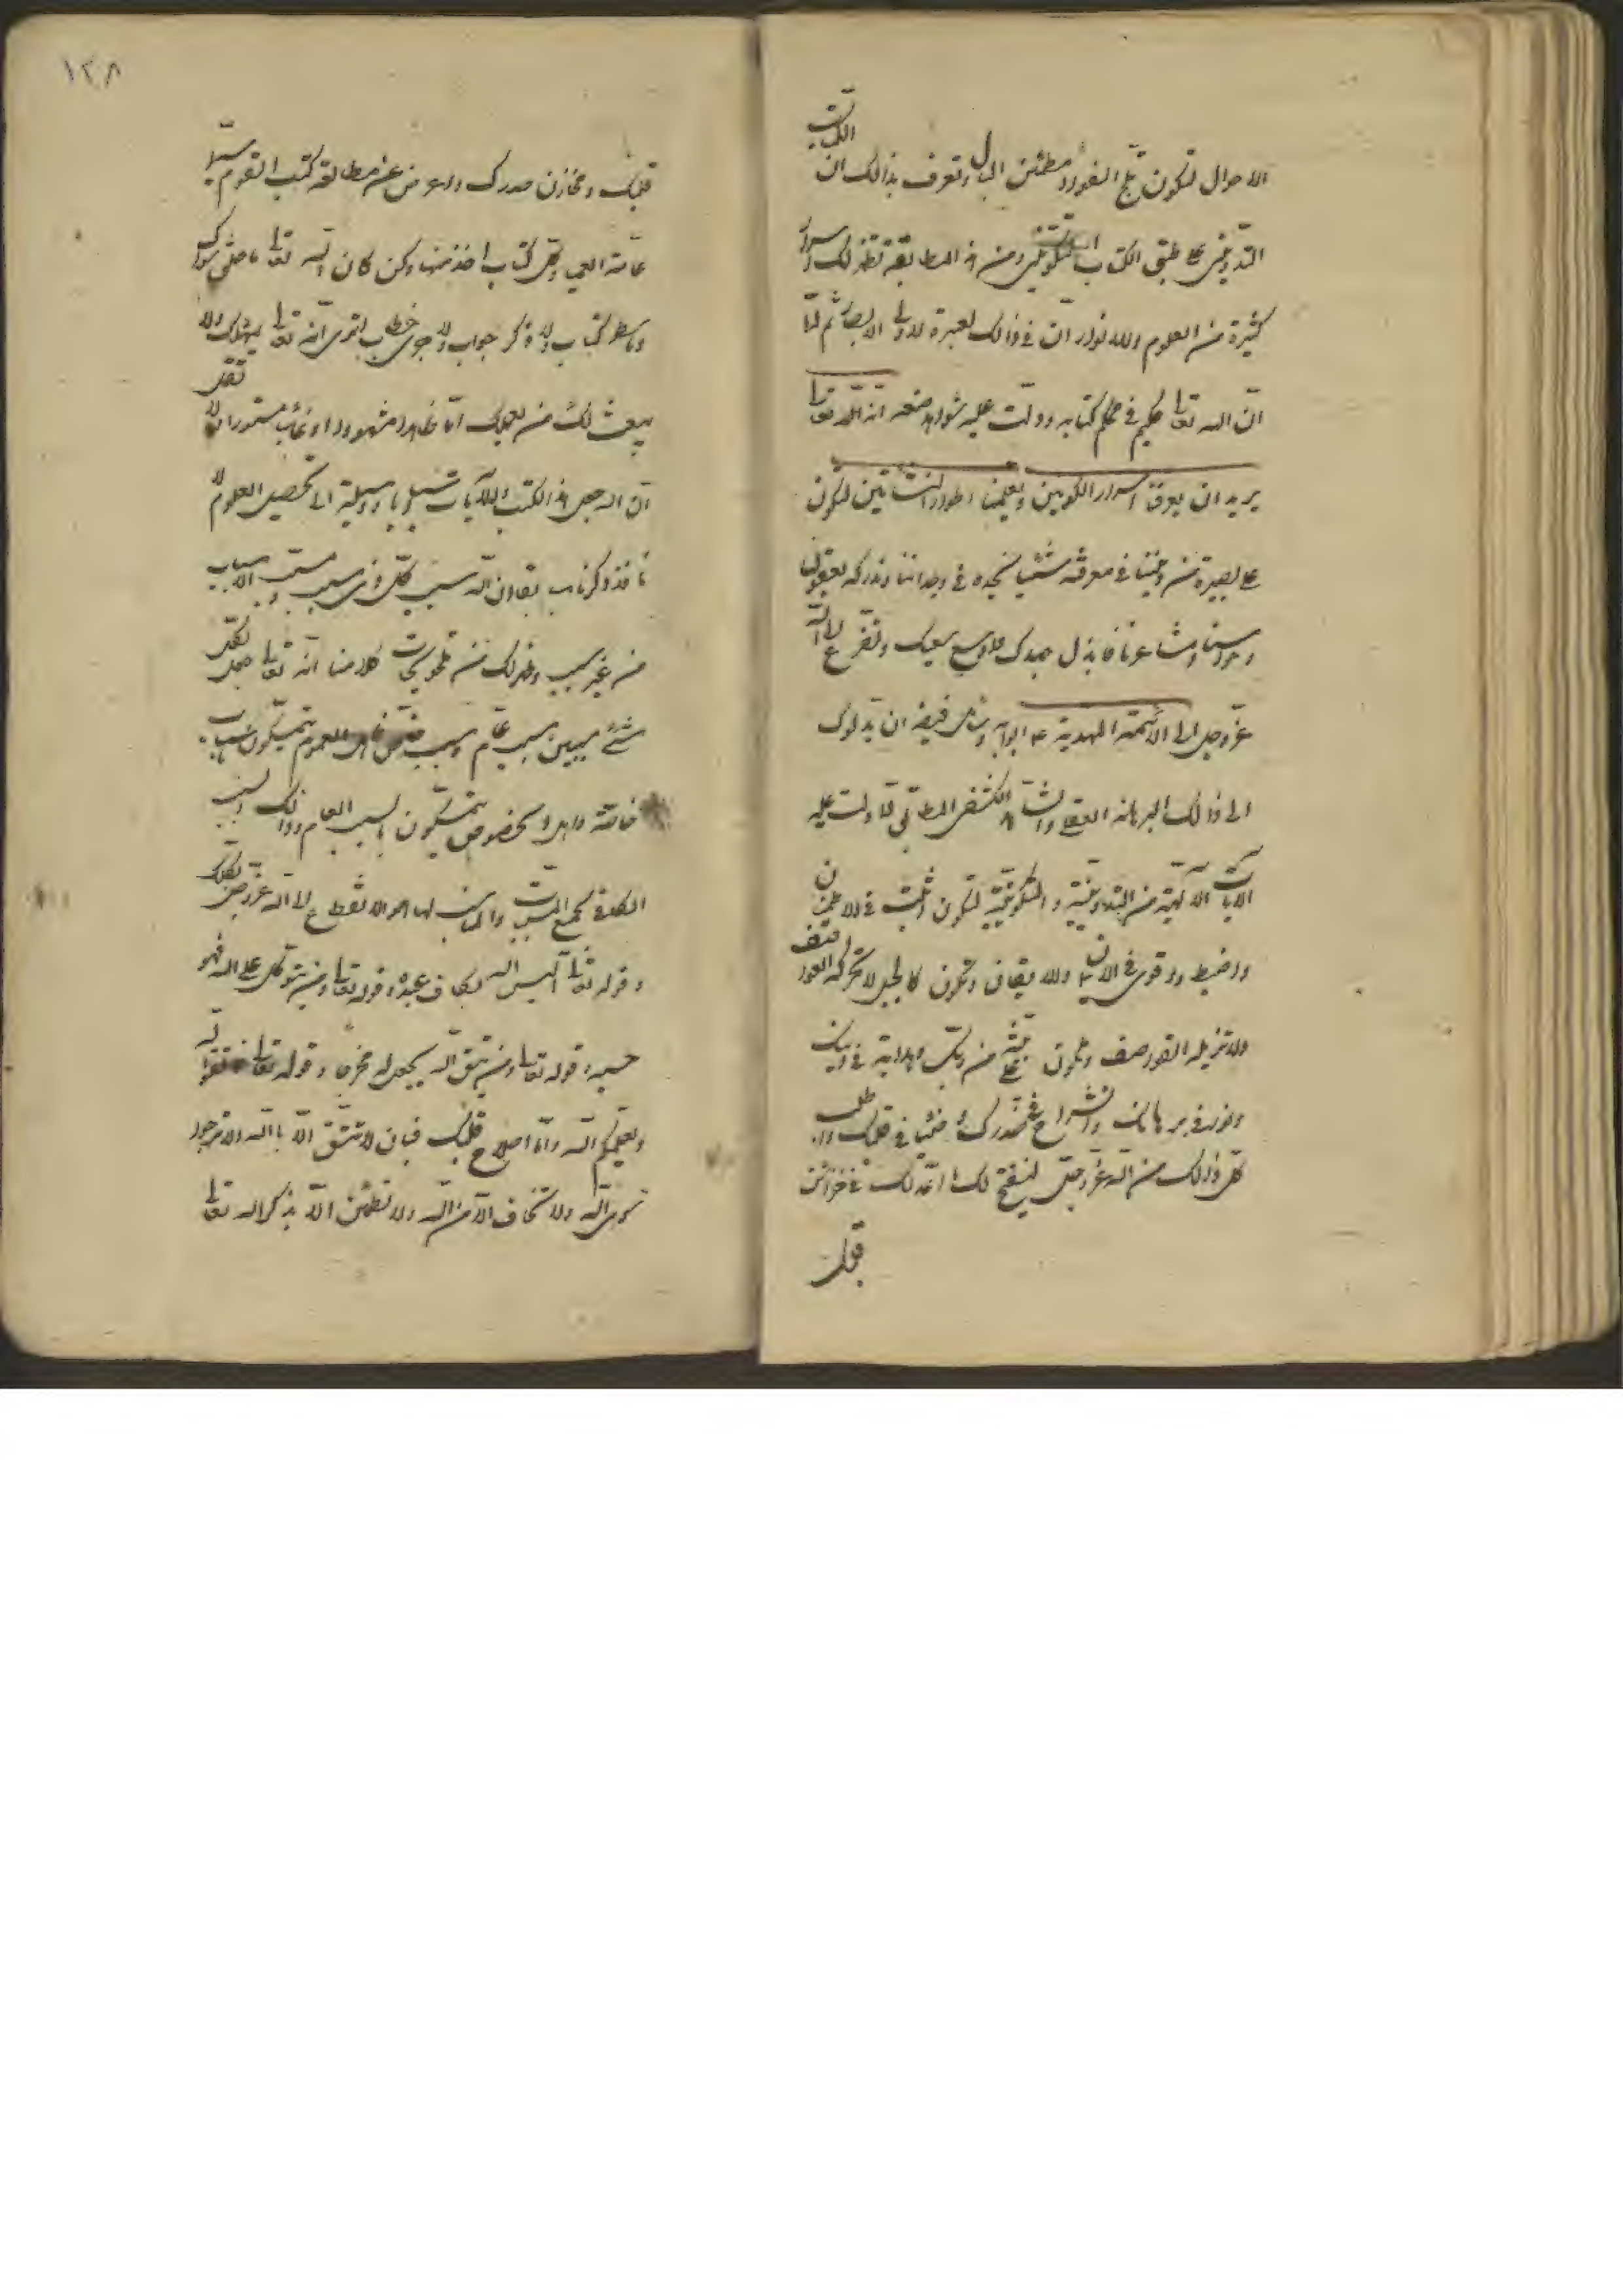 الاحوال لتكون ثلج الفؤاد ومطمئن البال وتعرف بذالك ان الكتاب
التدويني على طبق الكتاب التكويني ومن هذه المطابقة تظهر لك اسرار
كثيرة من العلوم والانوار ان في ذالك لعبرة لاولى الابصار ثم لما
ان الله تعالى حكيم في محكم كتابه ودلت عليه شواهد صنعه انه تعالى
يريد ان يعرفنا اسرار الكونين ويعلمنا اطوار النشاتين لنكون
على بصيرة من ديننا في معرفة شيئا نجده في وجداننا وندركه بعقولنا
وحواسنا ومشاعرنا فابذل جهدك واوسع سعيك وتضرع الى الله
عز وجل والى الائمة المهدية ع ابوابه وشاهد فيضه ان يدلوك
الى ذالك البرهان العقلي والشاهد الكشفي المطابق لما دلت عليه
الايات الالهية من التدوينية والتكوينية لتكون اثبت في الاطمينان
واضبط واقوى في الايمان والايقان وتكون كالجبل لا تحركه العواصف
ولا تزيله القواصف وتكون على بينة من ربك وهداية في دينك
ونور في برهانك وانشراح في صدرك وضياء في قلبك واطلب
كل ذالك من الله عز وجل ليفتح لك ما اعد لك في خزائن
قلبك
١٢٨
قلبك ومخازن صدرك واعرض عن مطالعة كتب القوم سيما
عامة العمياء وكل كتاب اخذ منها وكن كان الله تعالى ما خلق سواك
وما سطر كتاب ولا ذكر جواب ولا جرى خطاب لترى انه تعالى يهملك ولا
يبعث لك من يعلمك اما ظاهرا مشهورا او غائب مستورا ولا تقل
ان الله جعل هذه الكتب والايات سبيلا وبابا ووسيلة الى تحصيل العلوم ولا
نافذ ذكر باب لقا ان الله سبب كل ذى سبب ومسبب الاسباب
من غير سبب وظهر لك من تلويحات كلامنا انه تعالى جعل لكل
شئ سببين سبب عام وسبب خاص فاهل العموم يتمسكون باسباب
خاصة واهل الخصوص يتمسكون بالسبب العام وذالك السبب
الكلي في جميع المسببات والاسباب لها هو الانقطاع الى الله عز وجل
وقوله تعالى اليس الله بكاف عبده وقوله تعالى ومن يتوكل على الله فهو
حسبه وقوله تعالى ومن يتق الله يجعل له مخرجا وقوله تعالى اتقوا الله
ويعلمكم الله واما اصلاح قلبك فبان لا تثق الا بالله ولا ترجو
سوى الله ولا تخاف الا من الله ولا تطمئن الا بذكر الله تعالى